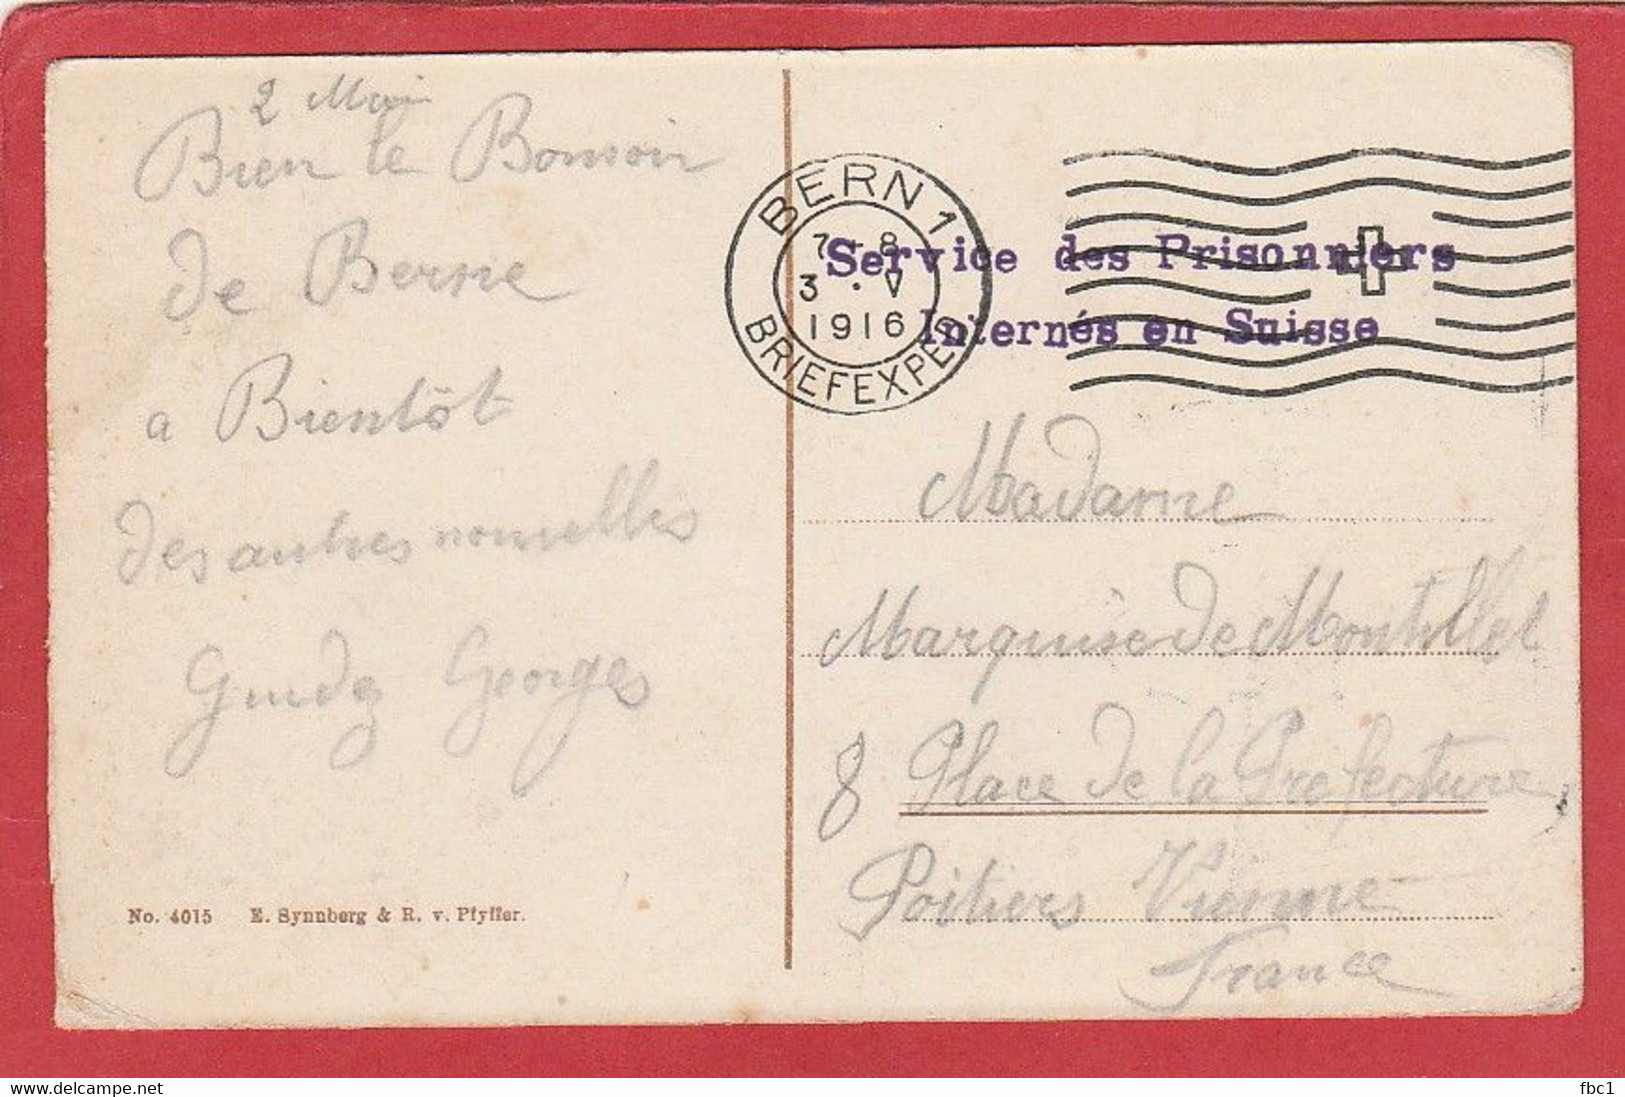 2 Mai
Bien le Bonsoir
de Berne
a Bientôt
des autres nouvelles
Georges
No. 4015 E. Synnberg & R. v. Pfyffer.
BERN 1
7-8
3 · V
1916
BRIEFEXPED
Service des Prisonniers
Internés en Suisse
Madame
Marquise de
8 Place de la Prefecture
Poitiers Vienne
France
fbc1